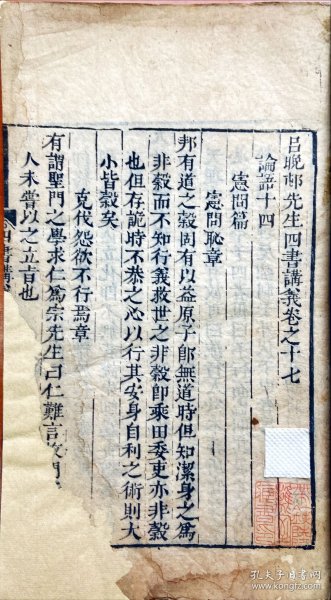 呂晚邨先生四書講義卷之十七
論語十四
憲問篇
憲問恥章
邦有道之穀固有以益原子卽無道時但知潔身之爲
非穀而不知行義救世之非穀卽乘田委吏亦非穀
也但存詭時不恭之心以行其安身自利之術則大
小皆穀矣
克伐怨欲不行焉章
有謂聖門之學求仁爲宗先生曰仁難言故門
人未嘗以之立言也
四書講
孔夫子旧书网